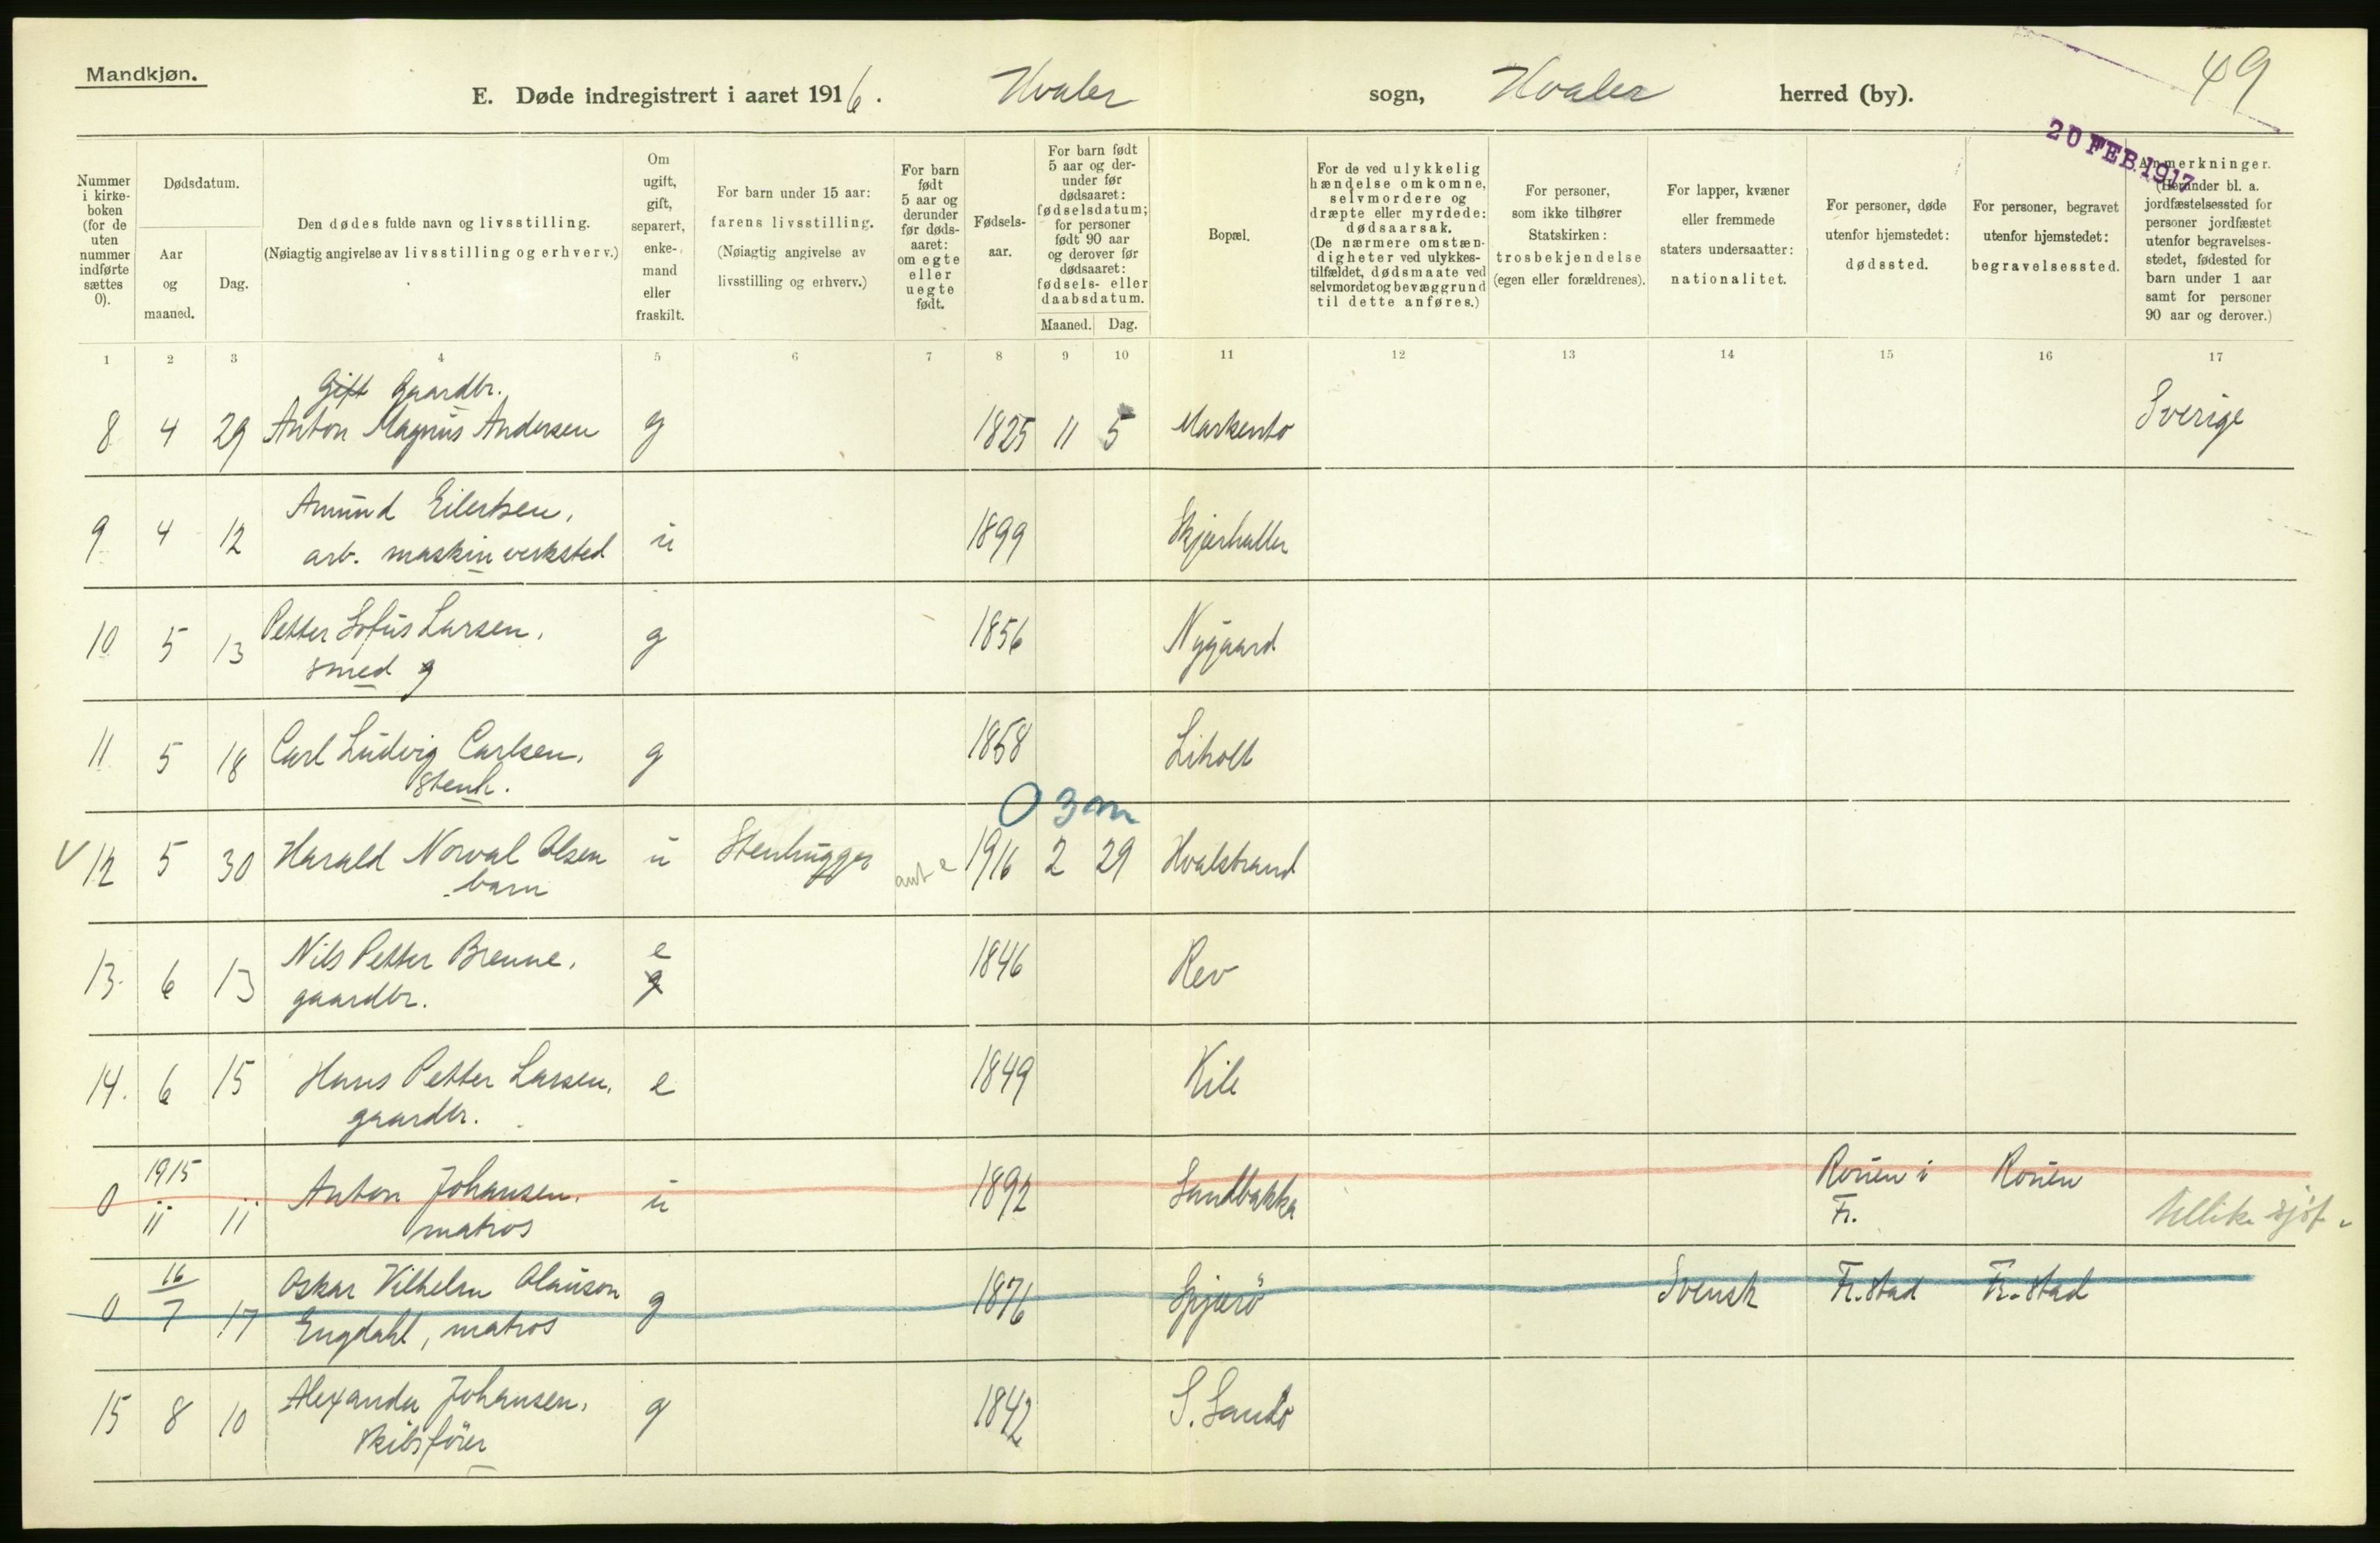 Mandkjøn.
E. Døde indregistrert i aaret 1916. Hvaler sogn, Hvaler herred (by).
49
20 FEB. 1917
Nummer i kirke-boken (for de uten nummer indførte sættes 0).
Dødsdatum.
Aar og maaned.
Dag.
Den dødes fulde navn og livsstilling.
(Nøiagtig angivelse av livsstilling og erhverv.)
Om ugift, gift, separert, enke-mand eller fraskilt.
For barn under 15 aar:
farens livsstilling.
(Nøiagtig angivelse av livsstilling og erhverv.)
For barn født 5 aar og derunder før døds-aaret: om egte eller uegte født.
Fødsels-aar.
For barn født 5 aar og der-under før dødsaaret: fødselsdatum; for personer født 90 aar og derover før dødsaaret: fødsels- eller daabsdatum.
Maaned. Dag.
Bopæl.
For de ved ulykkelig hændelse omkomne, selvmordere og dræpte eller myrdede: dødsaarsak. (De nærmere omstæn-digheter ved ulykkes-tilfældet, dødsmaate ved selvmordet og bevæggrund til dette anføres.)
For personer, som ikke tilhører Statskirken: trosbekjendelse (egen eller forældrenes).
For lapper, kvæner eller fremmede staters undersaatter: nationalitet.
For personer, døde utenfor hjemstedet: dødssted.
For personer, begravet utenfor hjemstedet: begravelsessted.
Anmerkninger.
(Herunder bl. a. jordfæstelsessted for personer jordfæstet utenfor begravelses-stedet, fødested for barn under 1 aar samt for personer 90 aar og derover.)
1 2 3 4 5 6 7 8 9 10 11 12 13 14 15 16 17
Gift Gaardbr.
8 4 29 Anton Magnus Andersen g 1825 11 5 Markento Sverige
9 4 12 Amund Eilertsen, u 1899 Skjærhallen
arb. maskinverksted
10 5 13 Petter Sofus Larsen, g 1856 Nygaard
smed g
11 5 18 Carl Ludvig Carlsen, g 1858 Liholt
stenh.
0 3 m
V 12 5 30 Harald Norval Olsen u Stenhugger ant e 1916 2 29 Hvalstrand
barn
13 6 13 Nils Petter Brenne, e g 1846 Rev
gaardbr.
14. 6 15 Hans Petter Larsen, e 1849 Kile
gaardbr.
0 1915 11 11 Anton Johansen, u 1892 Sandbakka Rouen i Fr. Rouen tillike sjøf.
matros
0 16/7 17 Oskar Vilhelm Olauson g 1876 Spjærö Svensk Fr.stad Fr.stad
Engdahl, matros
15 8 10 Alexander Johansen, g 1842 S. Sandö
Skibsförer